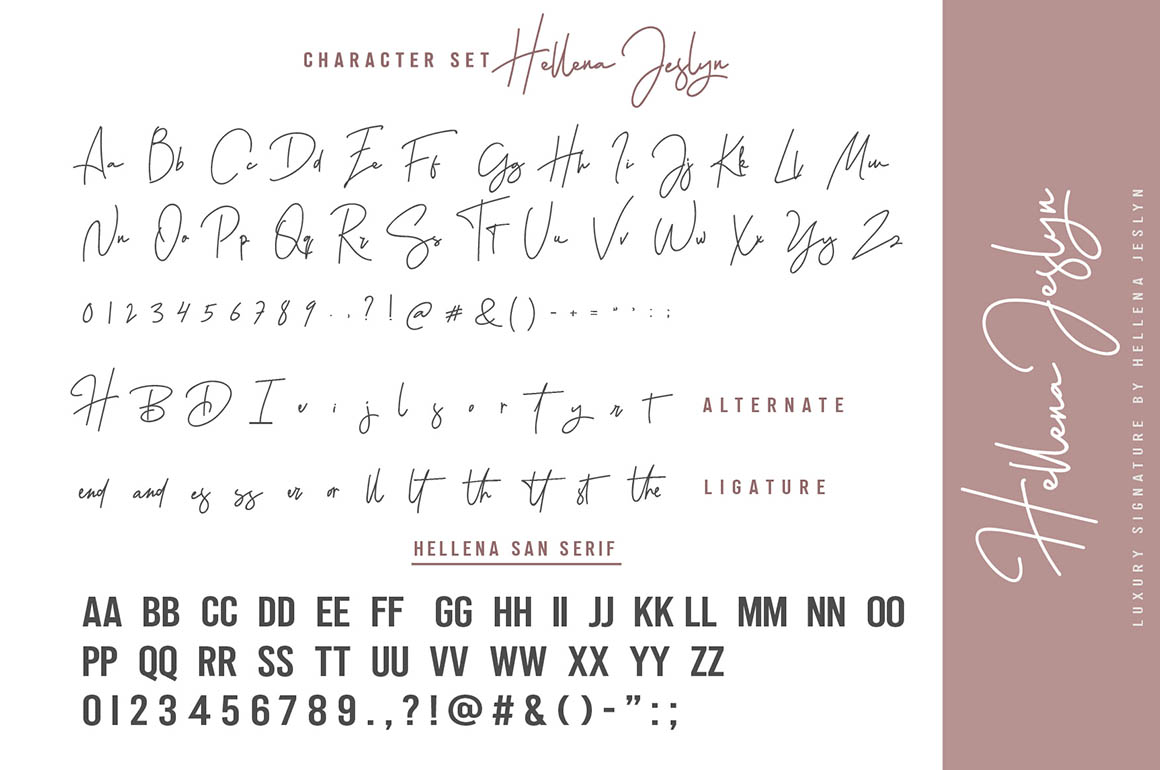 CHARACTER SET Hellena Jeslyn
Aa Bb Cc Dd Ee Ff Gg Hh Ii Jj Kk Ll Mm
Nn Oo Pp Qq Rr Ss Tt Uu Vv Ww Xx Yy Zz
0123456789.,?!@#&()-+="':;
H B D I e i j l s o r t y r t ALTERNATE
end and es ss er or ll lt th tt st the LIGATURE
HELLENA SAN SERIF
AA BB CC DD EE FF GG HH II JJ KK LL MM NN OO
PP QQ RR SS TT UU VV WW XX YY ZZ
0123456789.,?!@#&()-":;
Hellena Jeslyn
LUXURY SIGNATURE BY HELLENA JESLYN